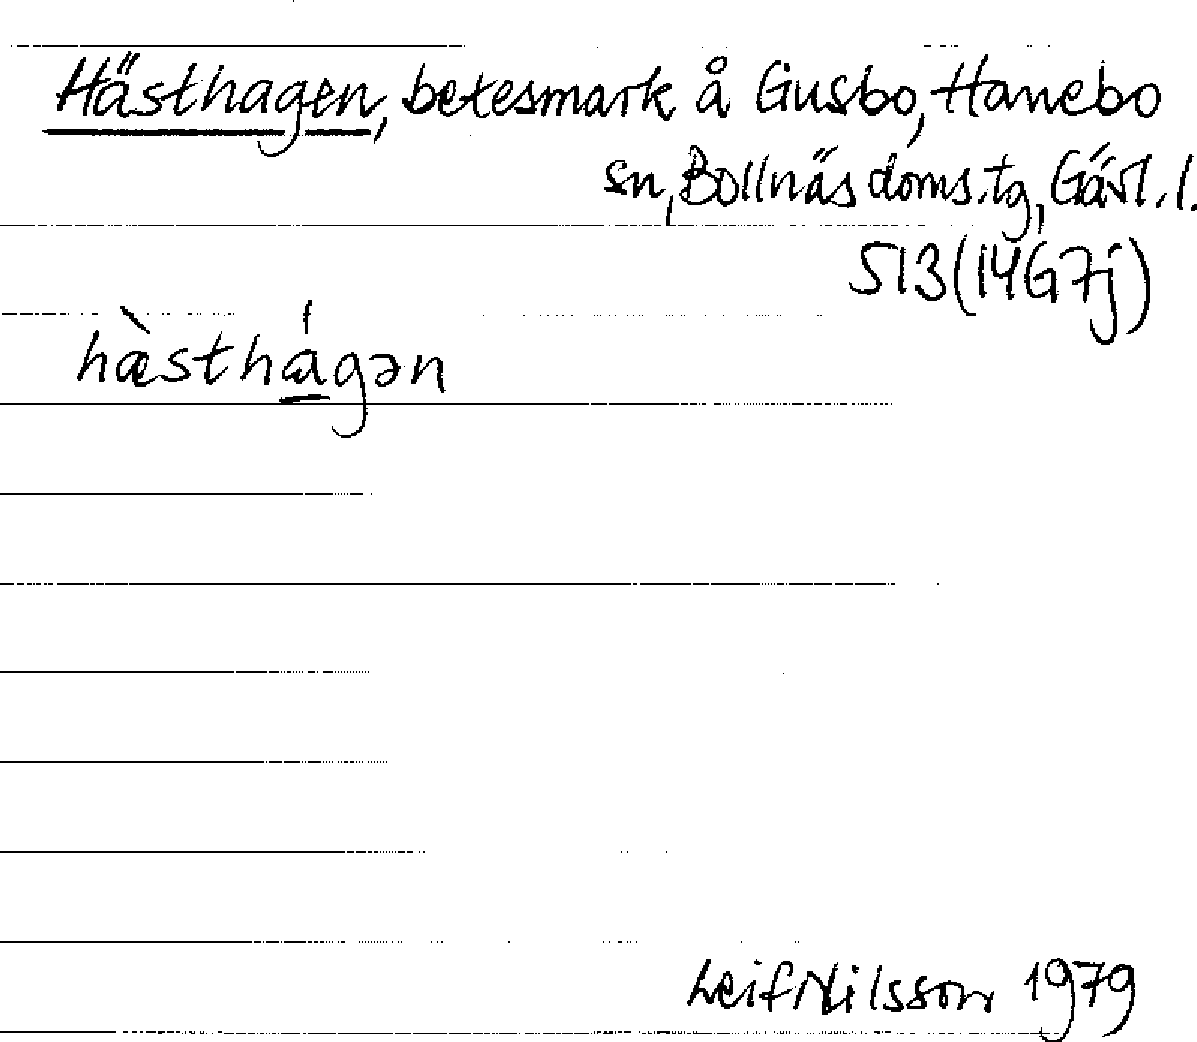 Hästhagen, betesmark å Gusbo, Hanebo
sn, Bollnäs doms.tg, Gävl. l.
513 (14G7j)
hæ̀sthágən
Leif Nilsson 1979